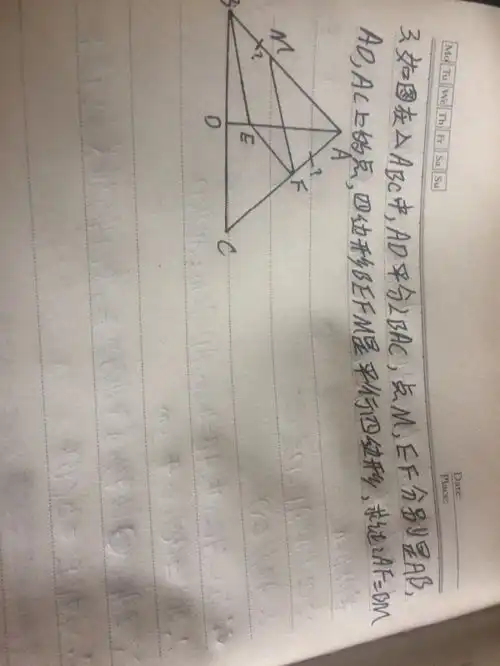 Mo Tu We Th Fr Sa Su
Date:
Place:
3.如图在△ABC中,AD平分∠BAC,点M,E,F分别是AB,
AD,AC上的点,四边形BEFM是平行四边形,求证:AF=BM
B
M
?
A
?
D
E
F
C